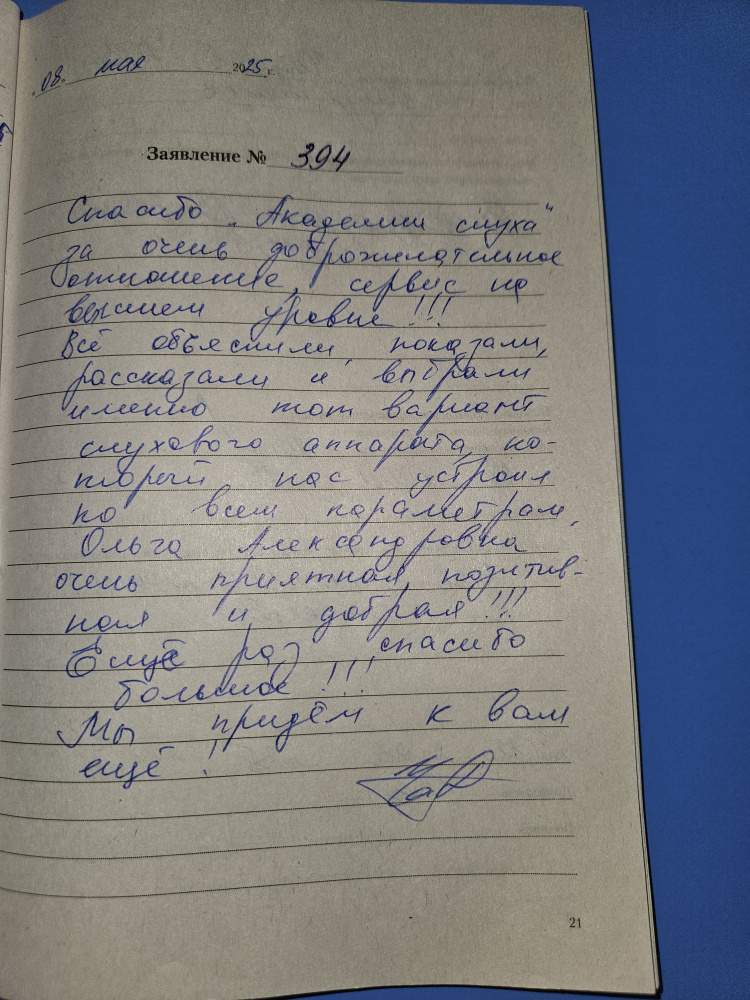 08. мая 2025 г.
Заявление № 394
Спасибо „Академии слуха"
за очень доброжелательное
отношение, сервис на
высшем уровне!!!
Всё объяснили, показали,
рассказали и выбрали
именно тот вариант
слухового аппарата, ко-
торый нас устроил
по всем параметрам.
Ольга Александровна
очень приятная, позитив-
ная и добрая!!!
Ещё раз спасибо
большое!!!
Мы придём к вам
ещё!
21